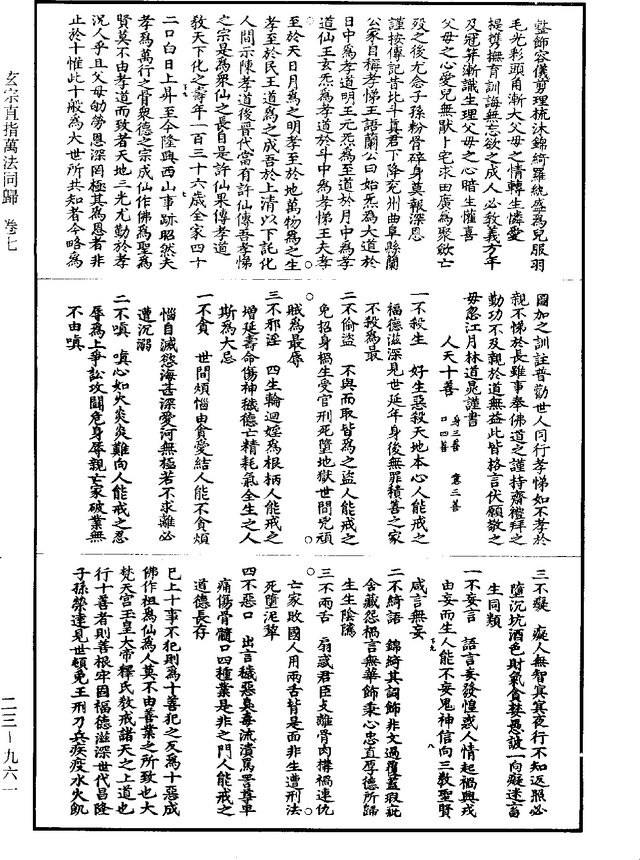 整飾容儀剪理梳沐錦綺羅紈盛為兒服羽
毛光彩頭角漸大父母之情轉生憐愛
提携撫育訓誨無忘欲之成人必教義方年
及冠筓漸識生理父母之心暗生懽喜
父母之心愛兒無猒卜宅求田廣為聚歛亡
歿之後尤念子孫粉骨碎身莫報深恩
謹按傳記昔比斗真君下降兗州曲阜縣蘭
公家自稱孝悌王語蘭公曰始炁為大道於
日中為孝道明王元炁為至道於月中為孝
道仙王玄炁為孝道於斗中為孝悌王夫孝
至於天日月為之明孝至於地萬物為之生
孝至於民王道為之成吾於上清以下託化
人間示陳孝道後晉代當有許仙傳吾孝悌
之宗是為衆仙之長自是許仙果傳孝道
敎天下化之壽年一百三十六歲全家四十
二口白日上昇至今隆興西山事跡昭然夫
孝為萬行之骨衆德之宗成仙作佛為聖為
賢莫不由孝道而致者天地三光尤勤於孝
况人乎且父母劬勞恩深罔極其為恩者非
止於十惟此十般為大世所共知者今略為
圖加之訓註普勸世人同行孝悌如不孝於
親不悌於長雖事奉佛道之謹持齋禮拜之
勤功不及親於道無益此皆格言伏願敬之
毋忽江月林道晁謹書
人天十善 身三善 意三善 口四善
一不殺生 好生惡殺天地本心人能戒之
福德滋深見世延年身後無罪積善之家
不殺為最
二不偷盜 不與而取皆為之盜人能戒之
免招身禍生受官刑死墮地獄世間兇頑
賊為最辱
三不邪淫 四生輪迴婬為根柄人能戒之
增延壽命傷神穢德亡精耗氣全生之人
斯為大忌
一不貪 世間煩惱由貪愛結人能不貪煩
惱自滅慾海苦深愛河無極若不求離必
遭沉溺
二不嗔 嗔心如火炎炎難向人能戒之忍
辱為上爭訟攻鬪危身辱親亡家破業無
不由嗔
三不癡 癡人無智冥冥夜行不知返照必
墮沉坑酒色財氣貪婪愚詖一向癡迷畜
生同類
一不妄言 語言妄發惶惑人情起禍興戎
由妄而生人能不妄鬼神信向三教聖賢
咸言無妄
二不綺語 錦綺其詞飾非文過覆蓋瑕疵
含藏怨禍言無華飾秉心忠直厚德所歸
生生陰隲
三不兩舌 扇惑君臣攴離骨肉構禍連仇
亡家敗國人用兩舌皆是而非生遭刑法
死墮泥犂
四不惡口 出言穢惡臭毒流潰罵詈尊卑
痛傷骨髓口四種業是非之門人能戒之
道德長存
已上十事不犯則為十善犯之反為十惡成
佛作祖為仙為人莫不由善業之所致也大
梵天宮玉皇大帝釋氏敎戒諸天之上道也
行十善者則善根牢固福德滋深世代昌隆
子孫榮達見世頓免王刑刀兵疾疫水火飢
玄宗直指萬法同歸 卷七
二三—九六一